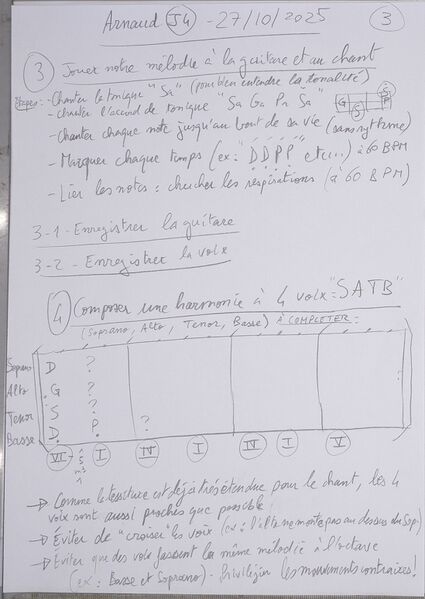 Arnaud J4 - 27/10/2025 3
3 Jouer notre mélodie à la guitare et au chant
Etapes: - Chanter la tonique "Sa" (pour bien entendre la tonalité)
- chanter l'accord de tonique "Sa Ga Pa Ṡa" G S P Ṡ
- Chanter chaque note jusqu'au bout de sa vie (sans rythme)
- Marquer chaque temps (ex: "DDPP" etc...) à 60 BPM
- Lier les notes : chercher les respirations (à 60 BPM)
3-1 - Enregistrer la guitare
3-2 - Enregistrer la voix
4 Composer une harmonie à 4 voix "SATB"
(Soprano, Alto, Tenor, Basse) À COMPLETER :
Soprano D ?
Alto G ?
Tenor S ? ?
Basse D P.
VI- I IV I IV I V
→ Comme la tessiture est déjà très étendue pour le chant, les 4
voix sont aussi proches que possible
→ Eviter de "croiser" les voix (ex : l'alto ne monte pas au dessus du Sop.)
→ Eviter que des voix fassent la même mélodie à l'octave
(ex : Basse et Soprano) - Privilégier les mouvements contraires!